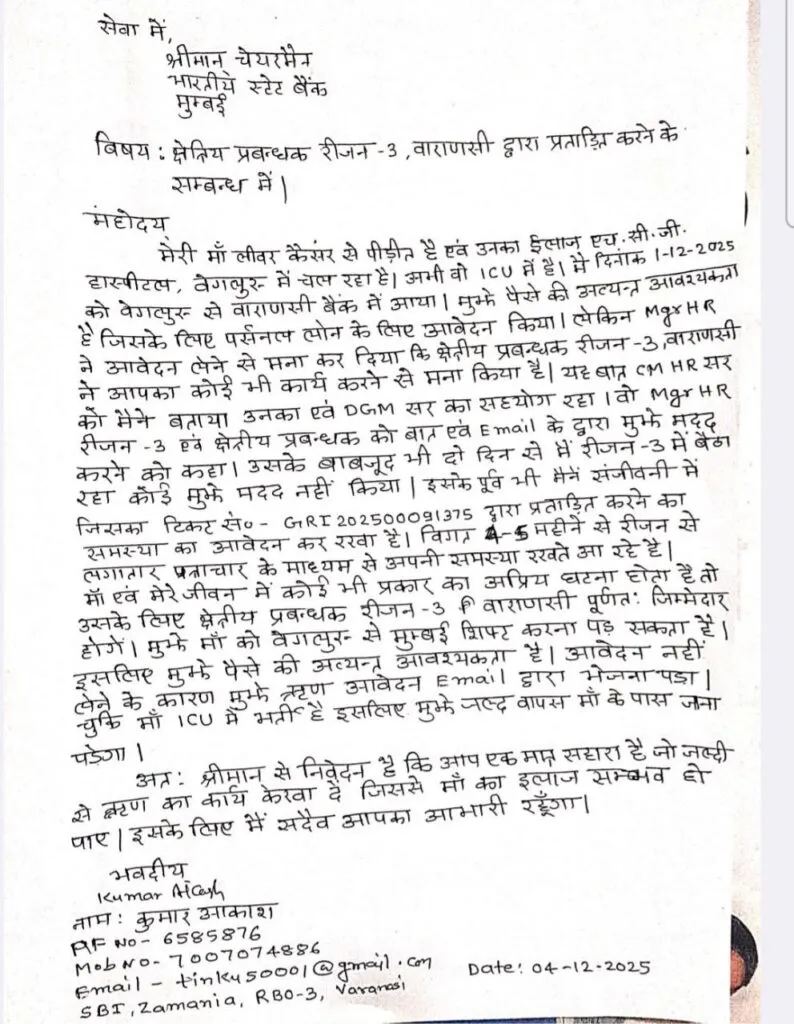 सेवा में,
श्रीमान चेयरमैन
भारतीय स्टेट बैंक
मुम्बई
विषय : क्षेत्रिय प्रबन्धक रीजन -3, वाराणसी द्वारा प्रताड़ित करने के
सम्बन्ध में |
महोदय
मेरी माँ लीवर कैंसर से पीड़ीत है एवं उनका ईलाज एच. सी. जी.
हास्पीटल, वेंगलुरु में चल रहा है। अभी वो ICU में है। मै दिनांक 1-12-2025
को वेंगलुरु से वाराणसी बैंक में आया। मुझे पैसे की अत्यन्त आवश्यकता
है जिसके लिए पर्सनल लोन के लिए आवेदन किया। लेकिन Mgr HR
ने आवेदन लेने से मना कर दिया कि क्षेत्रीय प्रबन्धक रीजन -3, वाराणसी
ने आपका कोई भी कार्य करने से मना किया है। यह बात CM HR सर
को मैने बताया उनका एवं DGM सर का सहयोग रहा । वो Mgr HR
रीजन -3 एवं क्षेत्रीय प्रबन्धक को बात एवं Email के द्वारा मुझे मदद
करने को कहा। उसके बाबजूद भी दो दिन से मैं रीजन-3 में बैठा
रहा कोई मुझे मदद नहीं किया | इसके पूर्व भी मैनें संजीवनी में
जिसका टिकट सं०- GRI202500091375 द्वारा प्रताड़ित करने का
समस्या का आवेदन कर रखा है। विगत 4-5 महीने से रीजन से
लगातार पत्राचार के माध्यम से अपनी समस्या रखते आ रहे है।
माँ एवं मेरे जीवन में कोई भी प्रकार का अप्रिय घटना होता है तो
उसके लिए क्षेत्रीय प्रबन्धक रीजन -3 वाराणसी पूर्णत: जिम्मेदार
होगें। मुझे माँ को वेंगलुरु से मुम्बई शिफ्ट करना पड़ सकता है।
इसलिए मुझे पैसे की अत्यन्त आवश्यकता है। आवेदन नहीं
लेने के कारण मुझे ऋण आवेदन Email द्वारा भेजना पडा |
चुकि माँ ICU में भर्ती है इसलिए मुझे जल्द वापस माँ के पास जाना
पडेगा ।
अत: श्रीमान से निवेदन है कि आप एक मात्र सहारा है जो जल्दी
से ऋण का कार्य करवा दे जिससे माँ का इलाज सम्भव हो
पाए | इसके लिए मैं सदैव आपका आभारी रहूँगा।
भवदीय
Kumar Akash
नाम: कुमार आकाश
PF No- 6585876
Mob No- 7007074886
Email - tinku50001@gmail.com
SBI, Zamania, RBO-3, Varanasi
Date: 04-12-2025